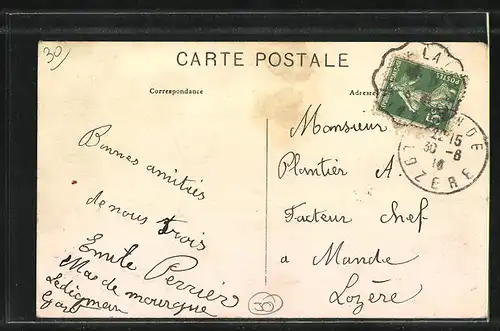 30
CARTE POSTALE
Correspondance
Adresse
Bonnes amitiés
de nous trois
Emile Perrier
Mas de mourgue
Lédignan
Gard
Monsieur
Plantier A.
Facteur chef
a Mande
Lozère
30
POSTES
LA
DE
15
30 -8
16
LOZERE